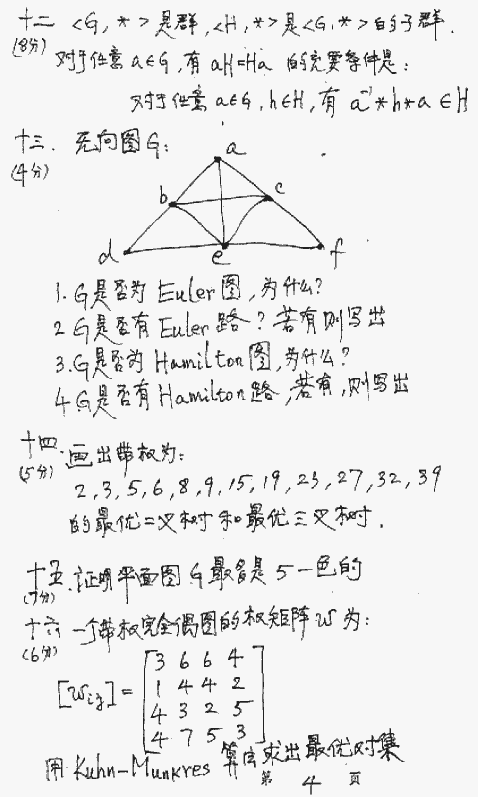 十二 <G,*>是群,<H,*>是<G,*>的子群.
(8分) 对于任意a∈G,有aH=Ha 的充要条件是:
对于任意 a∈G,h∈H,有 a⁻¹*h*a∈H
十三. 无向图G:
(4分)
a
b c
d e f
1.G是否为Euler图,为什么?
2 G是否有Euler路?若有则写出
3.G是否为Hamilton图,为什么?
4 G是否有Hamilton路,若有,则写出
十四.画出带权为:
(5分) 2,3,5,6,8,9,15,19,23,27,32,39
的最优二叉树和最优三叉树.
十五.证明平面图G最多是5-色的
(7分)
十六 一个带权完全偶图的权矩阵W为:
(6分)
3 6 6 4
[Wij]= 1 4 4 2
4 3 2 5
4 7 5 3
用Kuhn-Munkres 算法求出最优对集
第 4 页